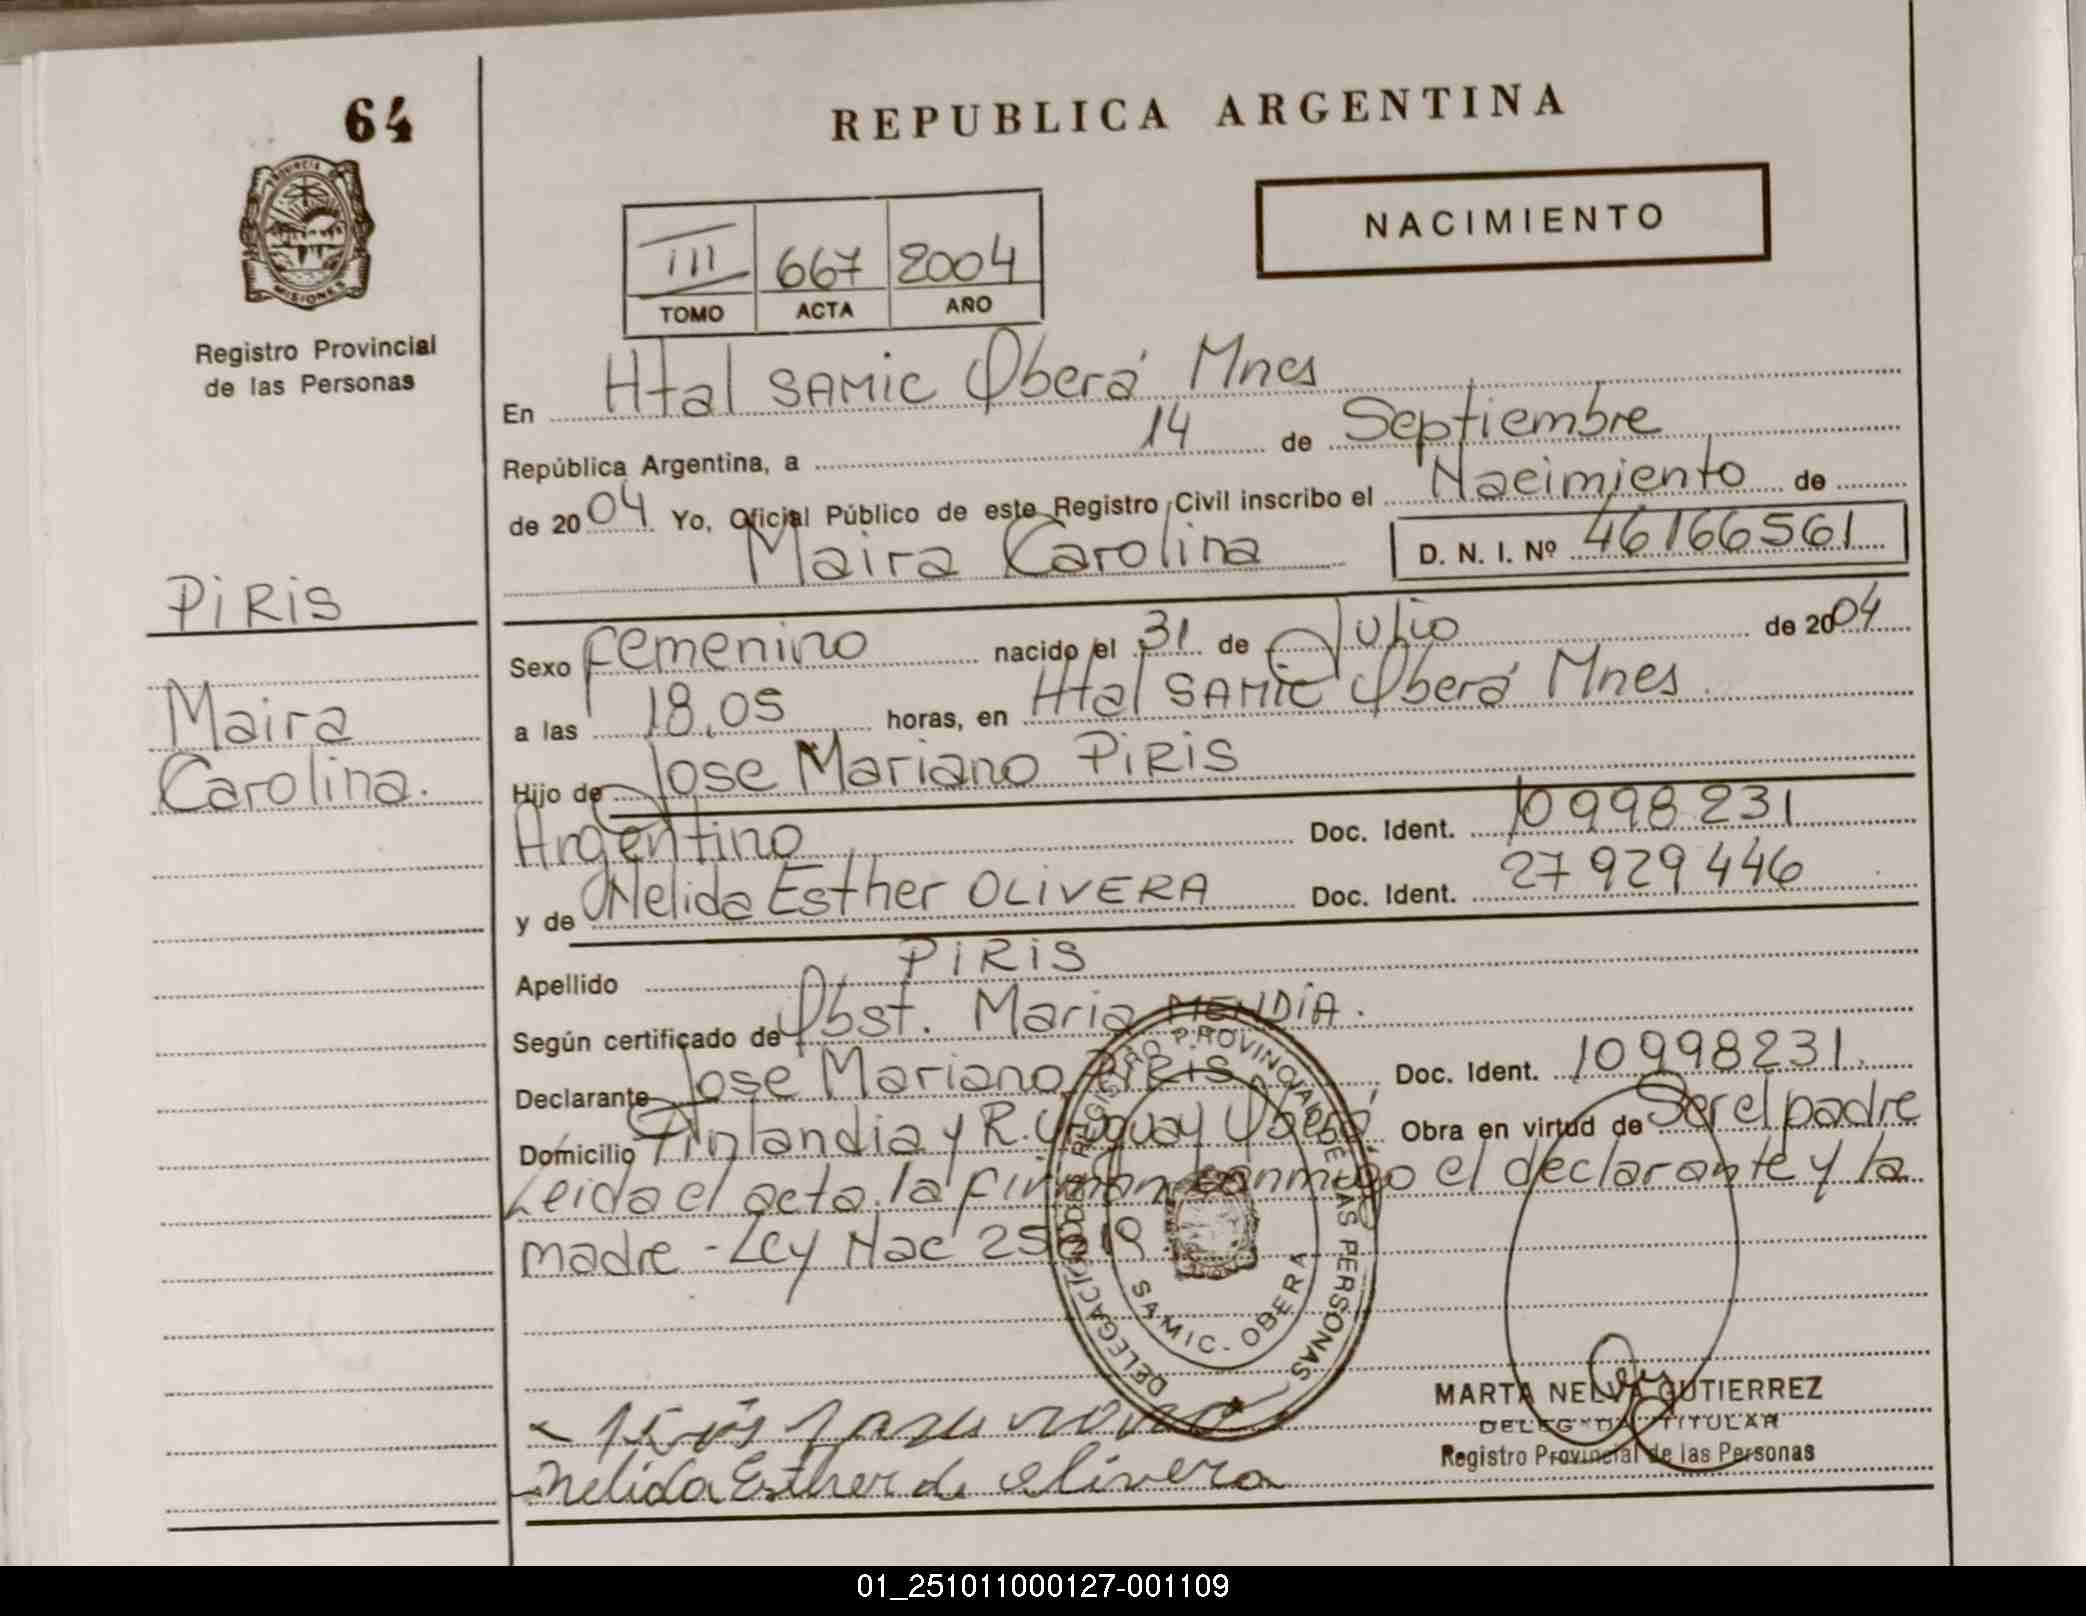 64
REPUBLICA ARGENTINA
PROVINCIA
MISIONES
Registro Provincial
de las Personas
NACIMIENTO
III 667 2004
TOMO ACTA AÑO
En Htal SAMIC Oberá Mnes
República Argentina, a 14 de Septiembre
de 2004 Yo, Oficial Público de este Registro Civil inscribo el Nacimiento de
Maira Carolina D. N. I. Nº 46166561
PIRIS
Maira
Carolina.
Sexo Femenino nacido el 31 de Julio de 2004
a las 18.05 horas, en Htal SAMIC Oberá Mnes
Hijo de Jose Mariano PIRIS
Argentino Doc. Ident. 10998231
y de Nelida Esther OLIVERA Doc. Ident. 27929446
Apellido PIRIS
Según certificado de Obst. Maria MENDIA.
Declarante Jose Mariano PIRIS Doc. Ident. 10998231.
Domicilio Finlandia y R. Uruguay Oberá Obra en virtud de Ser el padre
Leida el acta. la firman conmigo el declarante y la
madre - Ley Nac 25819.
DELEGACION REGISTRO PROVINCIAL DE LAS PERSONAS
SAMIC - OBERA
MARTA NELVA GUTIERREZ
DELEGADA TITULAR
Registro Provincial de las Personas
Nelida Esther de Olivera
01_251011000127-001109